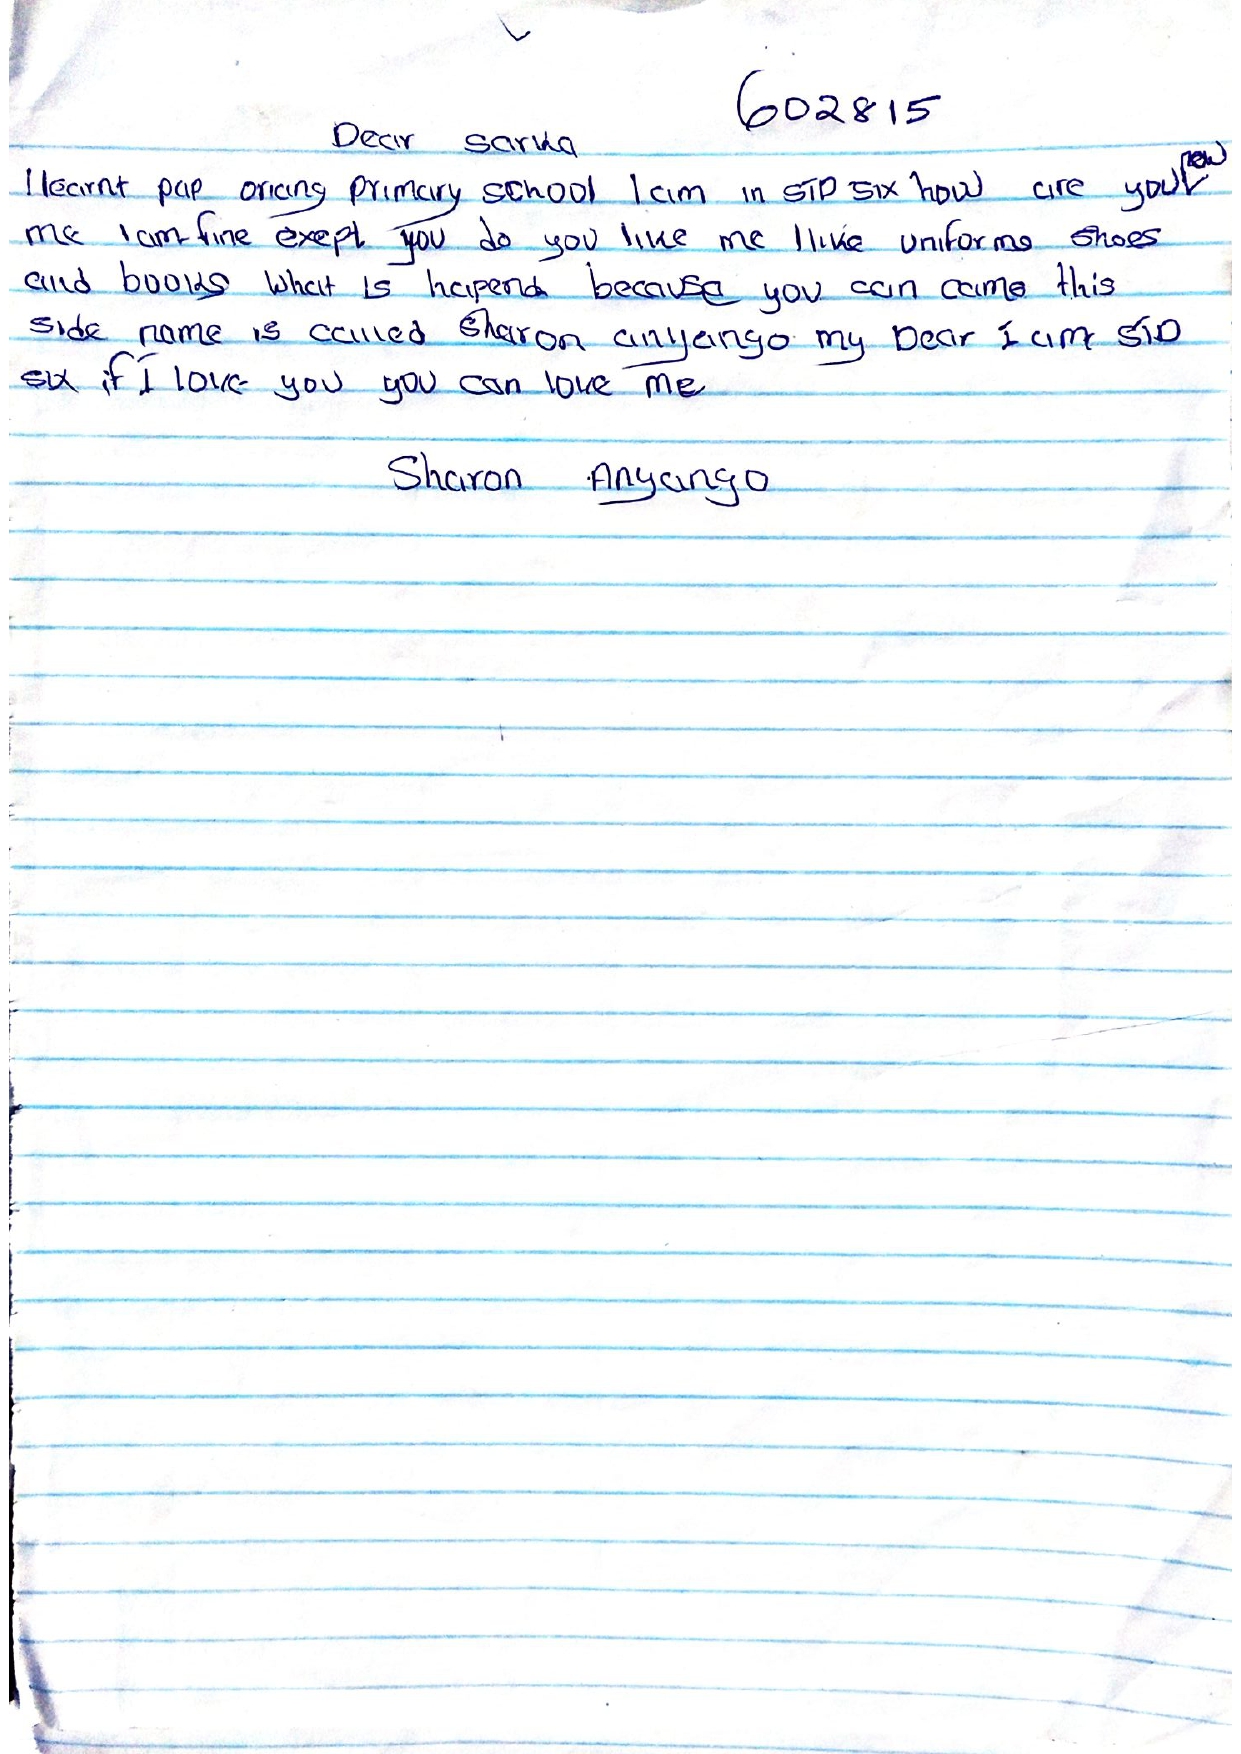 602815
Dear sarka
I learnt pap oriang primary school I am in STD six how are you now
me I am fine exept you do you like me I like uniforms shoes
and books What is hapend because you can came this
side name is called Sharon anyango my Dear I am STD
six if I love you you can love me
Sharon Anyango